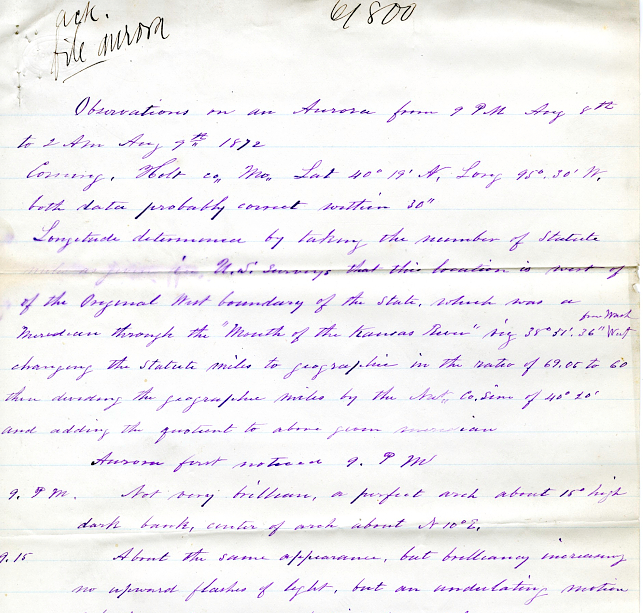 ack.
file aurora
61800
Observations on an Aurora from 9 P M Aug 8th
to 2 AM Aug 9th 1872
Corning, Holt co,, Mo,, Lat 40° 19' N, Long 95°. 30' W.
both data probably correct within 30"
Longitude determined by taking the number of Statute
U.S. Surveys that this location is west of
of the Original West boundary of the State, which was a
Meridian through the "Mouth of the Kansas River" viz 38° 51'. 36" West
from Wash
changing the Statute miles to geographic in the ratio of 69.05 to 60
then dividing the geographic miles by the Nat,, Co. Sine of 40° 20'
and adding the quotient to above given meridian
Aurora first noticed 9. P M
9. P M. Not very brilliant, a perfect arch about 15° high
dark bank, center of arch about N 10° E.
9.15 About the same appearance, but brilliancy increasing
no upward flashes of light, but an undulating motion